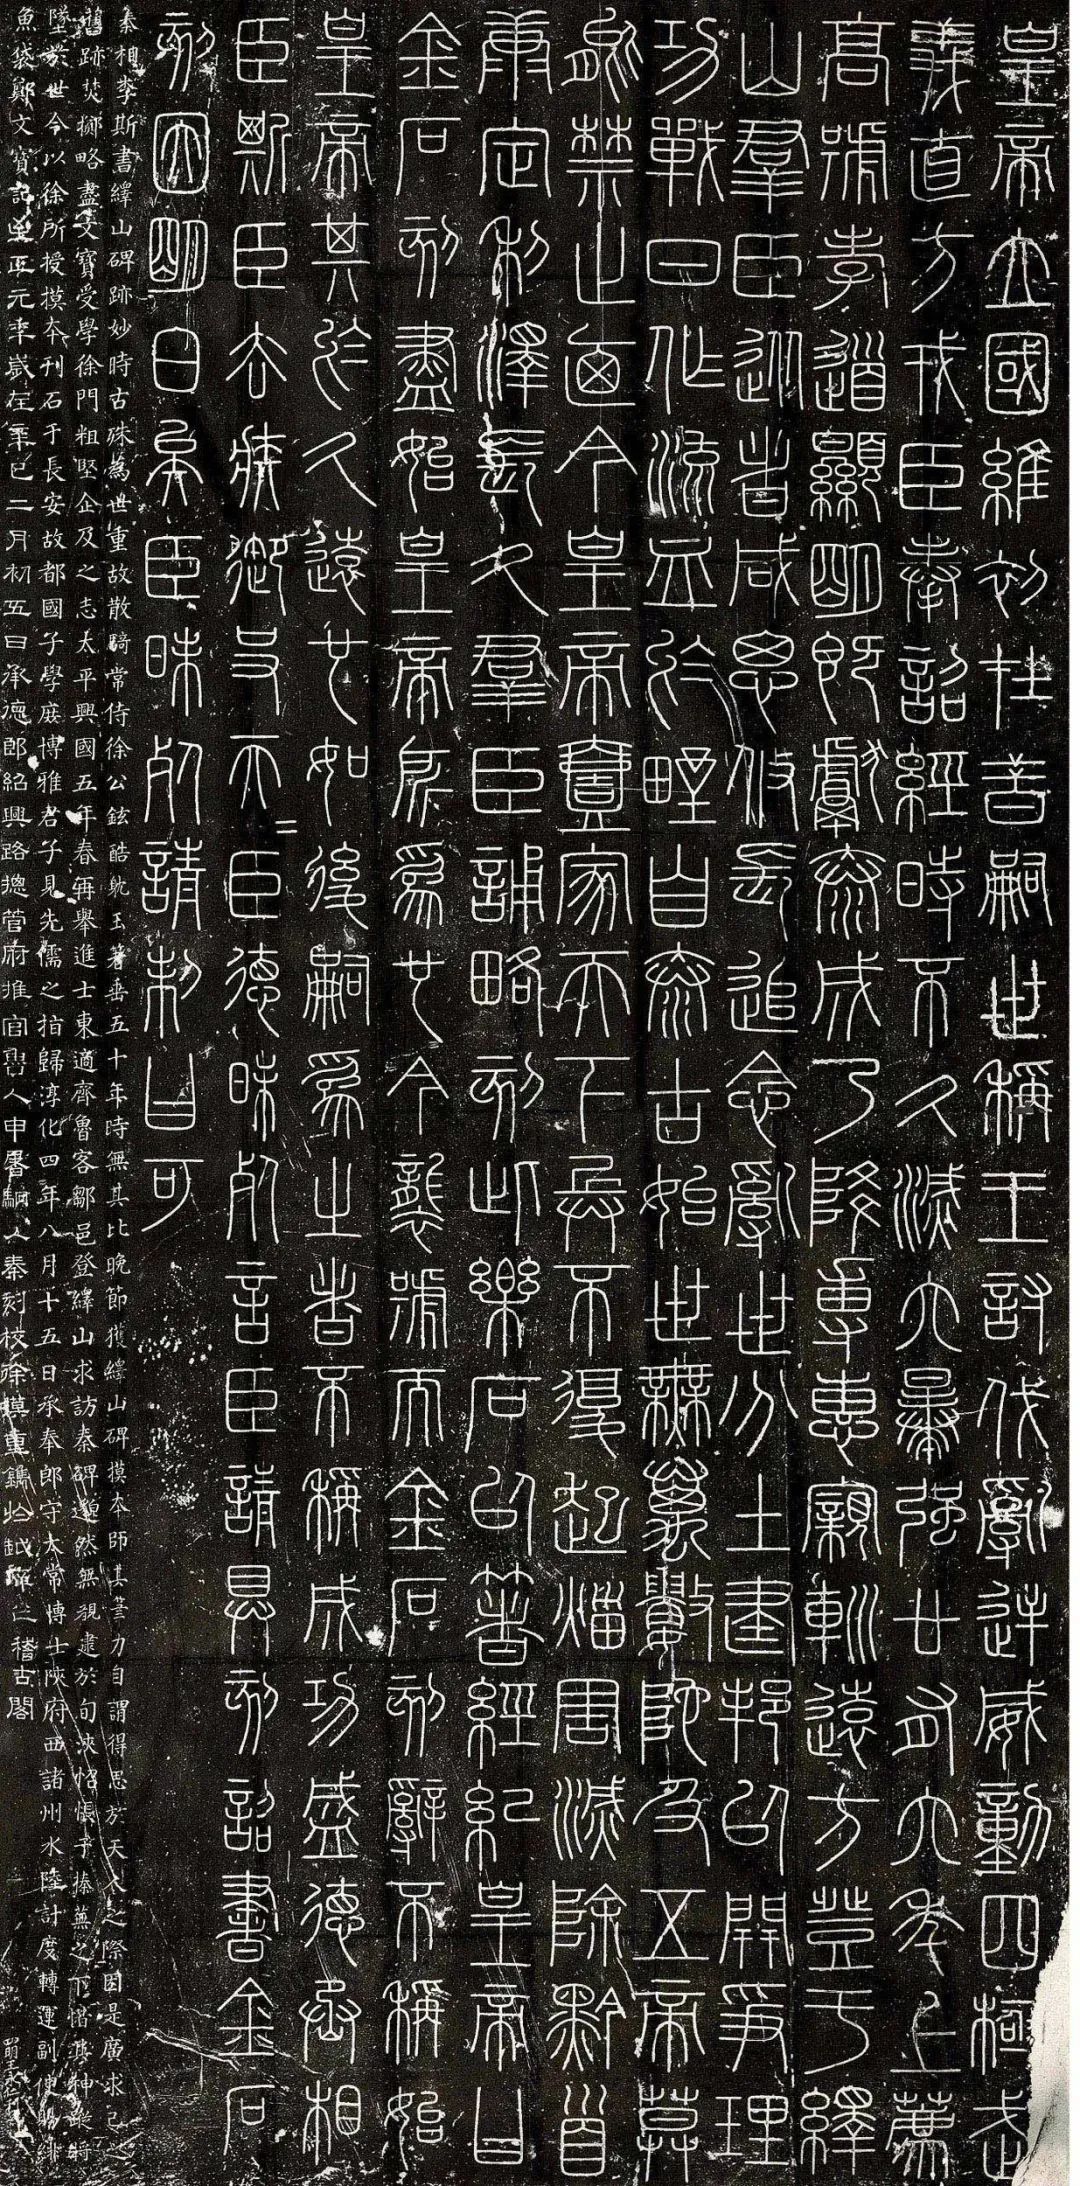 皇帝立國維初在昔嗣世稱王討伐亂逆威動四極武
義直方戎臣奉詔經時不久滅六暴強廿有六年上薦
高號孝道顯明既獻泰成乃降專惠親巡遠方登于繹
山羣臣從者咸思攸長追念亂世分土建邦以開爭理
功戰日作流血於野自泰古始世無萬數陀及五帝莫
能禁止迺今皇帝壹家天下兵不復起災害滅除黔首
康定利澤長久羣臣誦略刻此樂石以著經紀皇帝曰
金石刻盡始皇帝所為也今襲號而金石刻辭不稱始
皇帝其於久遠也如後嗣為之者不稱成功盛德丞相
臣斯臣去疾御史夫=臣德昧死言臣請具刻詔書金石
刻因明白矣臣昧死請制曰可
秦相李斯書繹山碑跡妙時古殊為世重故散騎常侍徐公鉉酷躭玉箸垂五十年時無其比晚節獲繹山碑摸本師其筆力自謂得思於天人之際因是廣求己之
舊跡焚擲略盡文寶受學徐門粗堅企及之志太平興國五年春再舉進士東適齊魯客鄒邑登繹山求訪秦碑邈然無覩逮於旬浹怊悵于榛蕪之下惜其神蹤將
墜於世今以徐所授摸本刊石于長安故都國子學庶博雅君子見先儒之指歸淳化四年八月十五日承奉郎守太常博士陝府西諸州水陸計度轉運副使賜緋
魚袋鄭文寶記至正元年歲在辛巳二月初五日承德郎紹興路總管府推官魯人申屠駉以秦刻校徐摸重鐫於越庠之稽古閣